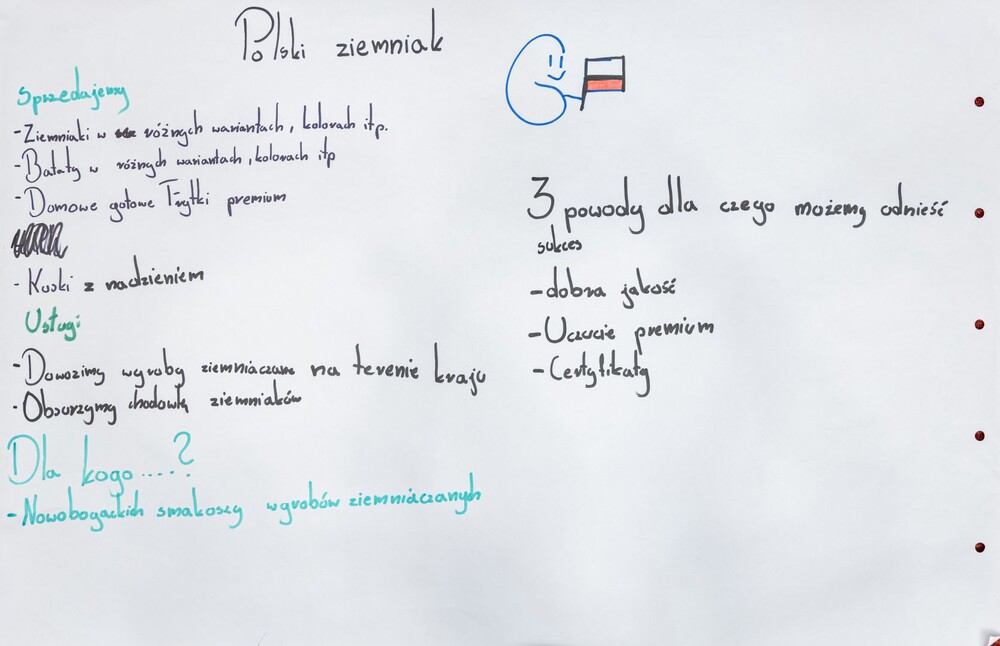 Polski ziemniak
Sprzedajemy
- Ziemniaki w różnych wariantach, kolorach itp.
- Bataty w różnych wariantach, kolorach itp
- Domowe gotowe Frytki premium
- Kuski z nadzieniem
Usługi
- Dowozimy wyroby na terenie kraju
- Obsurzymy chodowlę ziemniaków
Dla kogo....?
- Nowobogackich smakoszy wyrobów ziemniaczanych
3 powody dla czego możemy odnieść
sukces
- dobra jakość
- Uczucie premium
- Certyfikaty